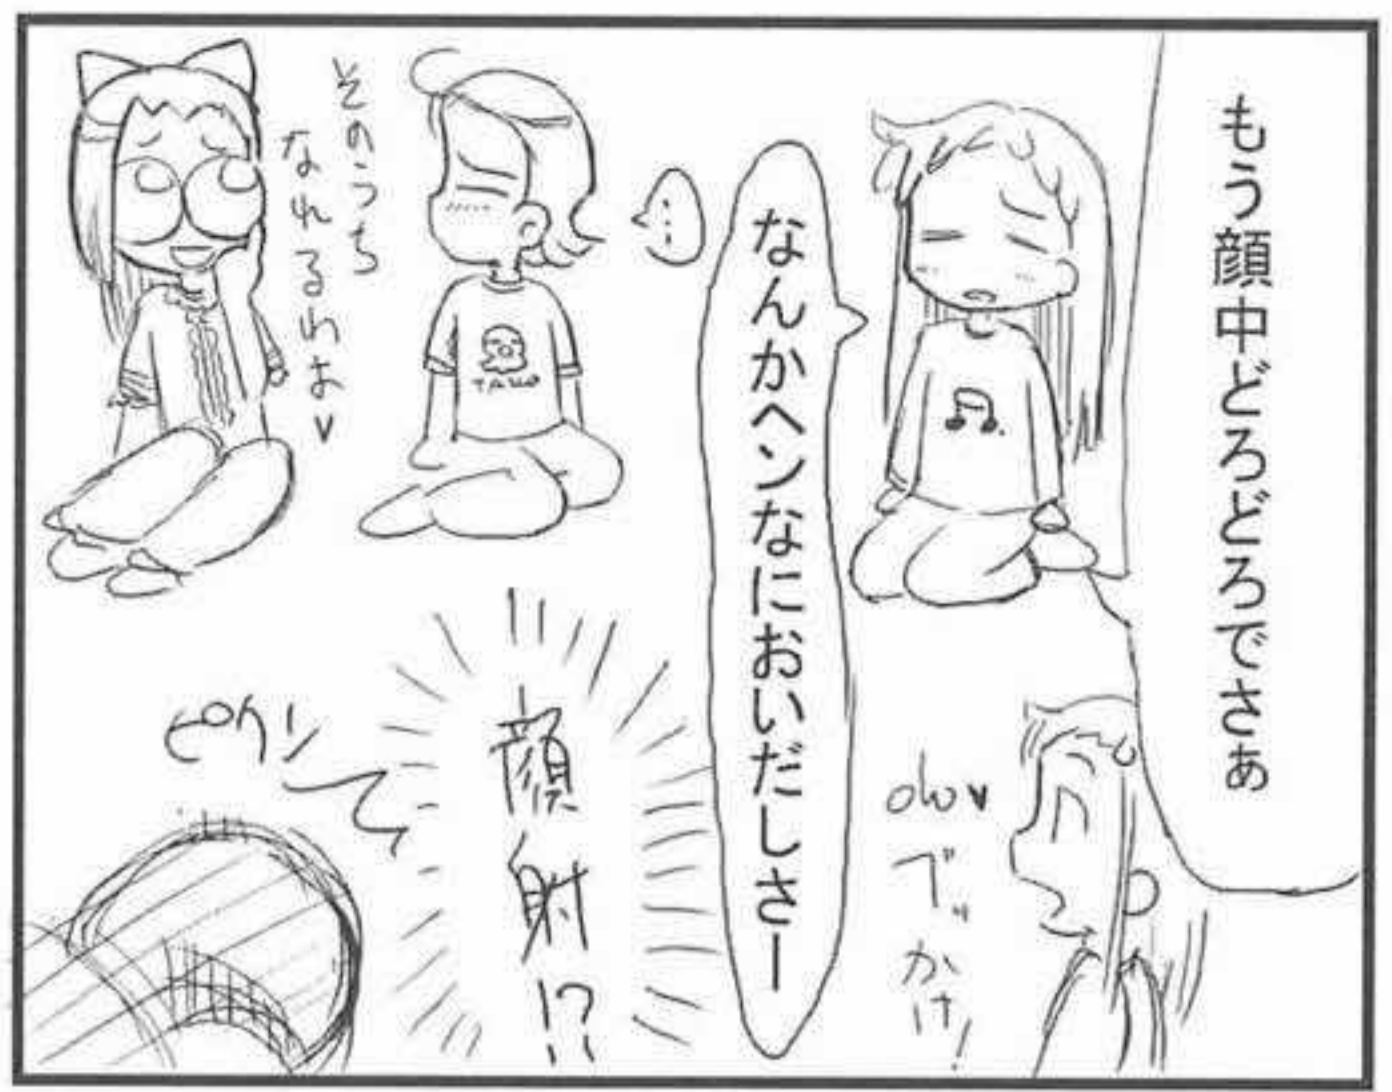 もう顔中どろどろでさぁ
なんかヘンなにおいだしさー
…
そのうち
なれるわよ♥
TAKO
oh♥
ぶっかけ!
顔射!?
ピクン